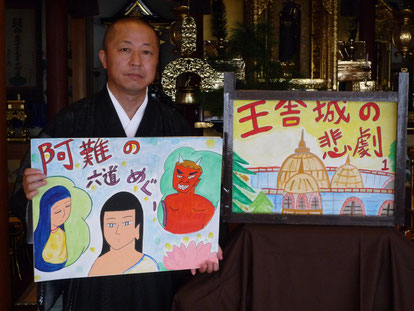 阿難の
六道めぐり
王舎城の
悲劇
1